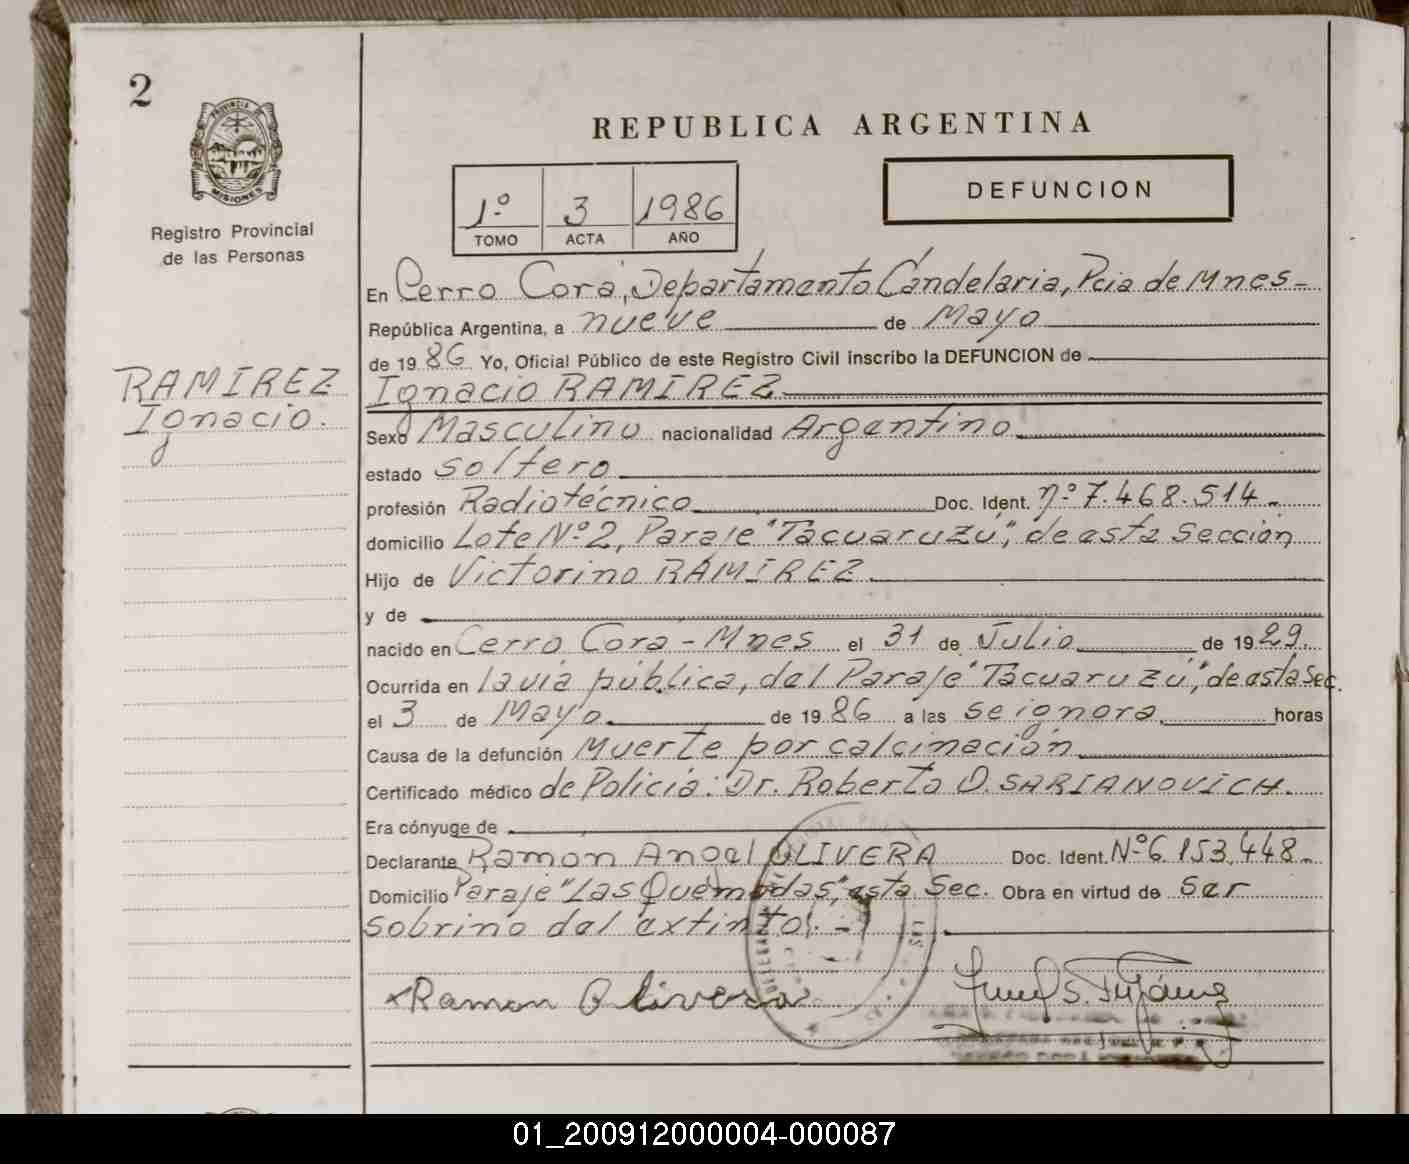 2
PROVINCIA DE
MISIONES
Registro Provincial
de las Personas
RAMIREZ
Ignacio.
REPUBLICA ARGENTINA
1º 3 1986
TOMO ACTA AÑO
DEFUNCION
En Cerro Corá, Departamento Candelaria, Pcia de Mnes-
República Argentina, a nueve de Mayo
de 1986 Yo, Oficial Público de este Registro Civil inscribo la DEFUNCION de
Ignacio RAMIREZ
Sexo Masculino nacionalidad Argentino
estado soltero
profesión Radiotécnico Doc. Ident. nº 7.468.514-
domicilio Lote Nº 2, Paraje "Tacuaruzú", de esta Sección
Hijo de Victorino RAMIREZ
y de
nacido en Cerro Corá - Mnes el 31 de Julio de 1929
Ocurrida en la vía pública, del Paraje "Tacuaruzú", de esta Sec.
el 3 de Mayo de 1986 a las se ignora horas
Causa de la defunción Muerte por calcinación
Certificado médico de Policía: Dr. Roberto O. SARIANOVICH.
Era cónyuge de
Declarante Ramon Angel OLIVERA Doc. Ident. Nº 6.153.448-
Domicilio Paraje "Las Quemadas", esta Sec. Obra en virtud de ser
sobrino del extinto.-
Ramon Olivera
01_200912000004-000087